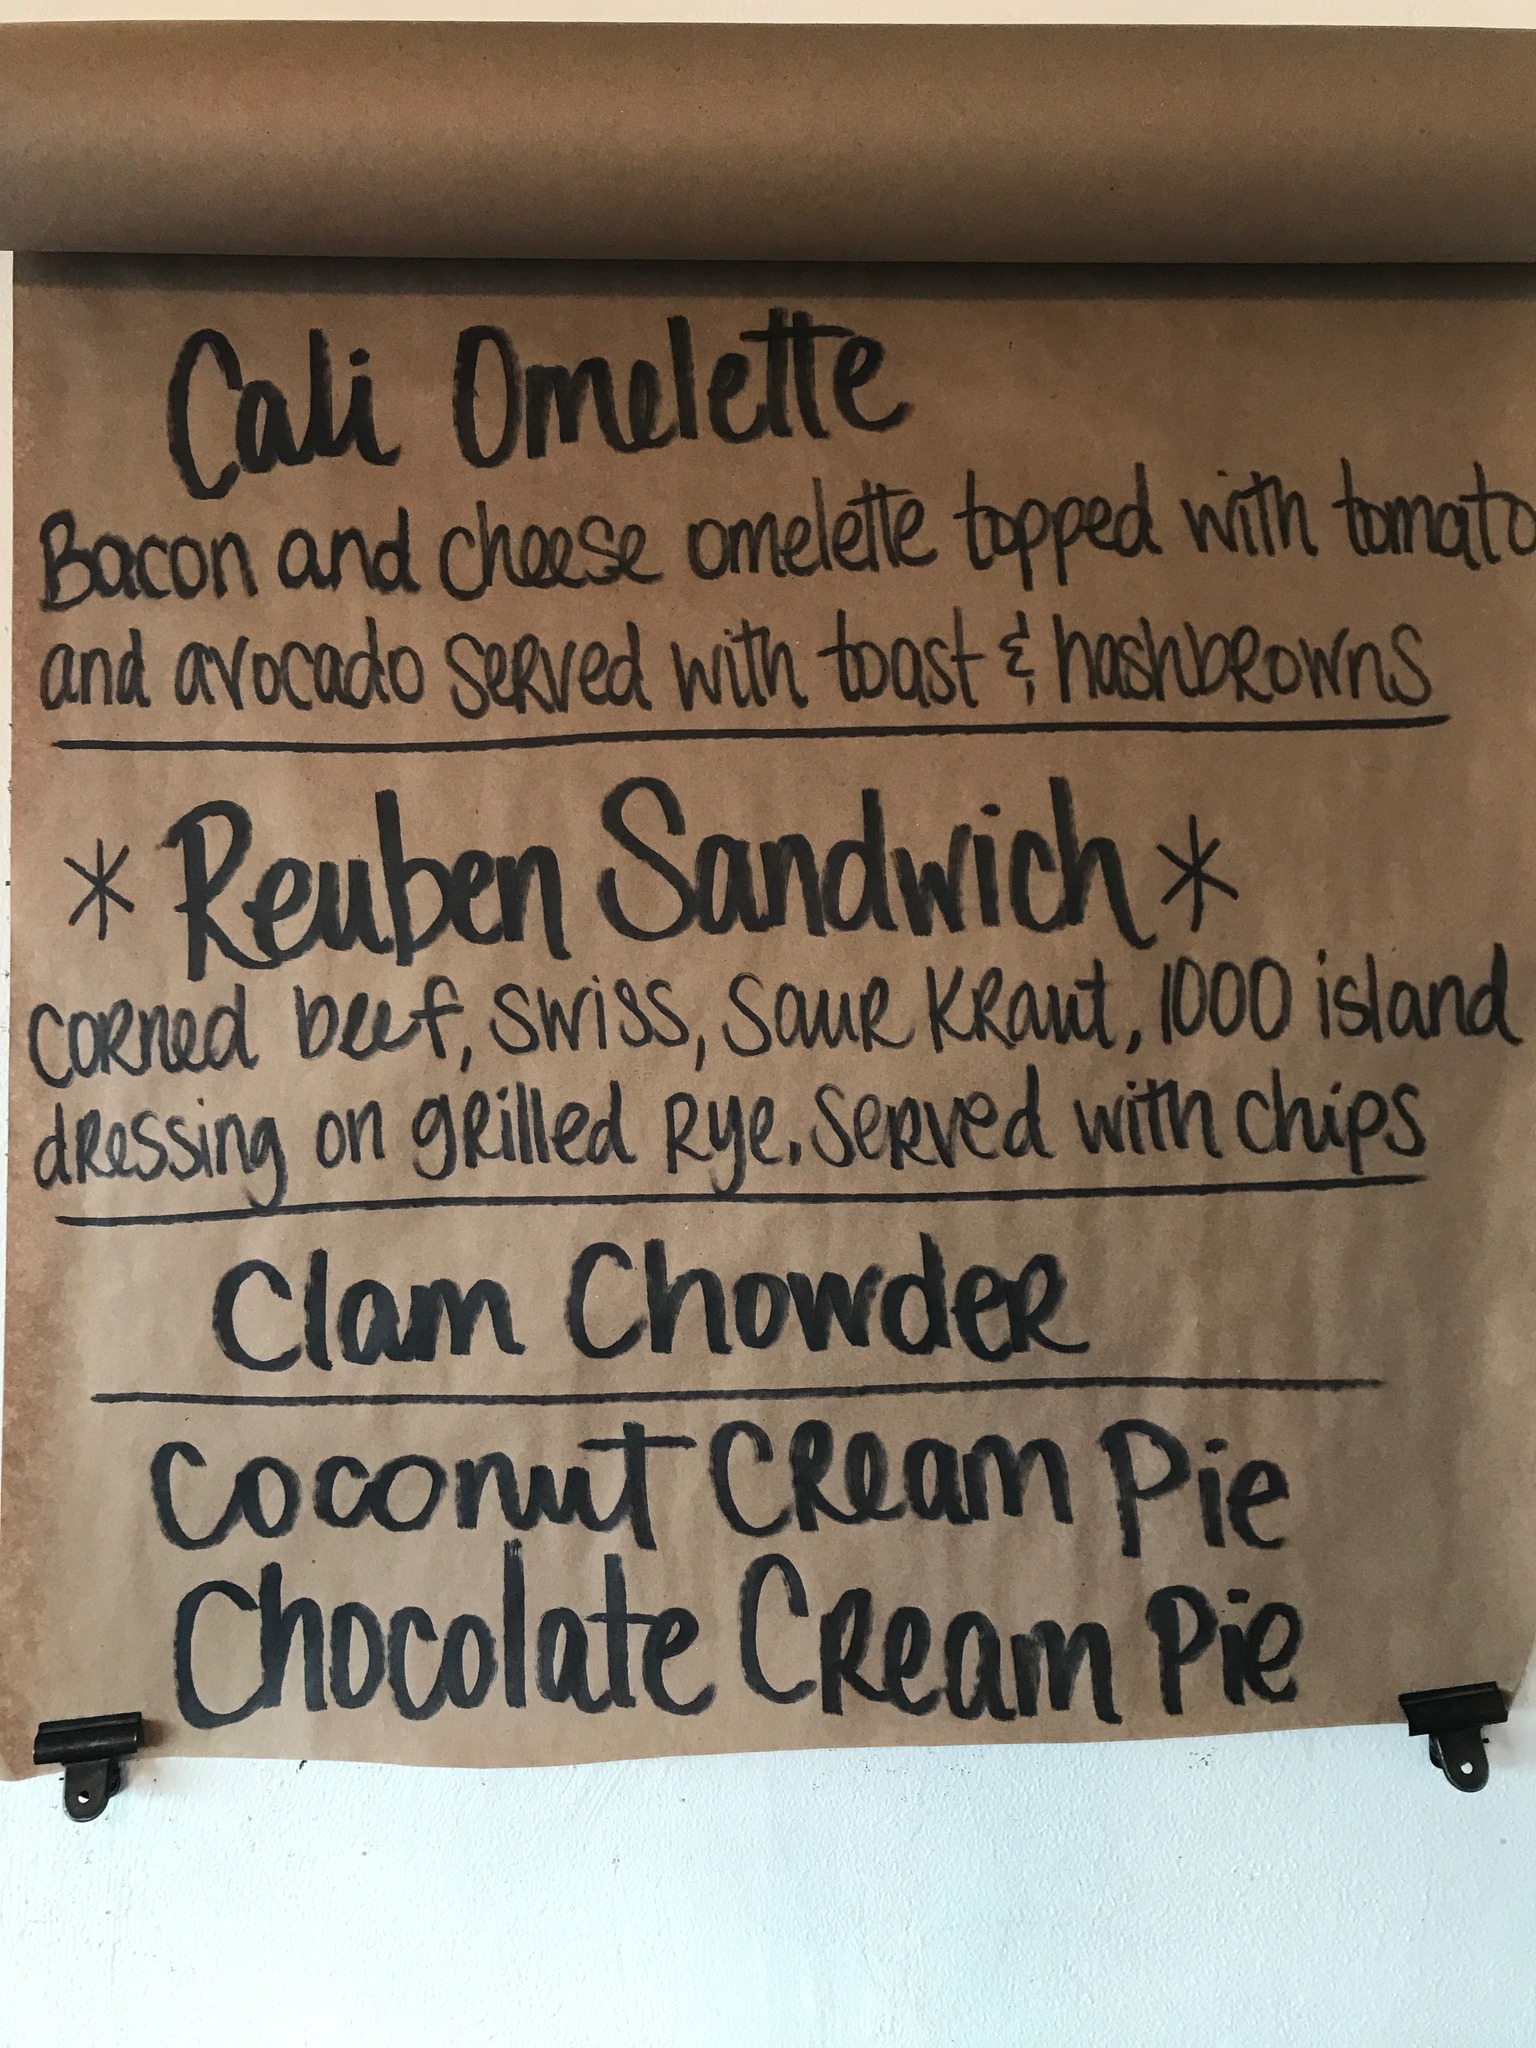 Cali Omelette
Bacon and cheese omelette topped with tomato
and avocado served with toast & hashbrowns
* Reuben Sandwich *
corned beef, swiss, saur kraut, 1000 island
dressing on grilled rye. served with chips
Clam Chowder
Coconut Cream Pie
Chocolate Cream Pie